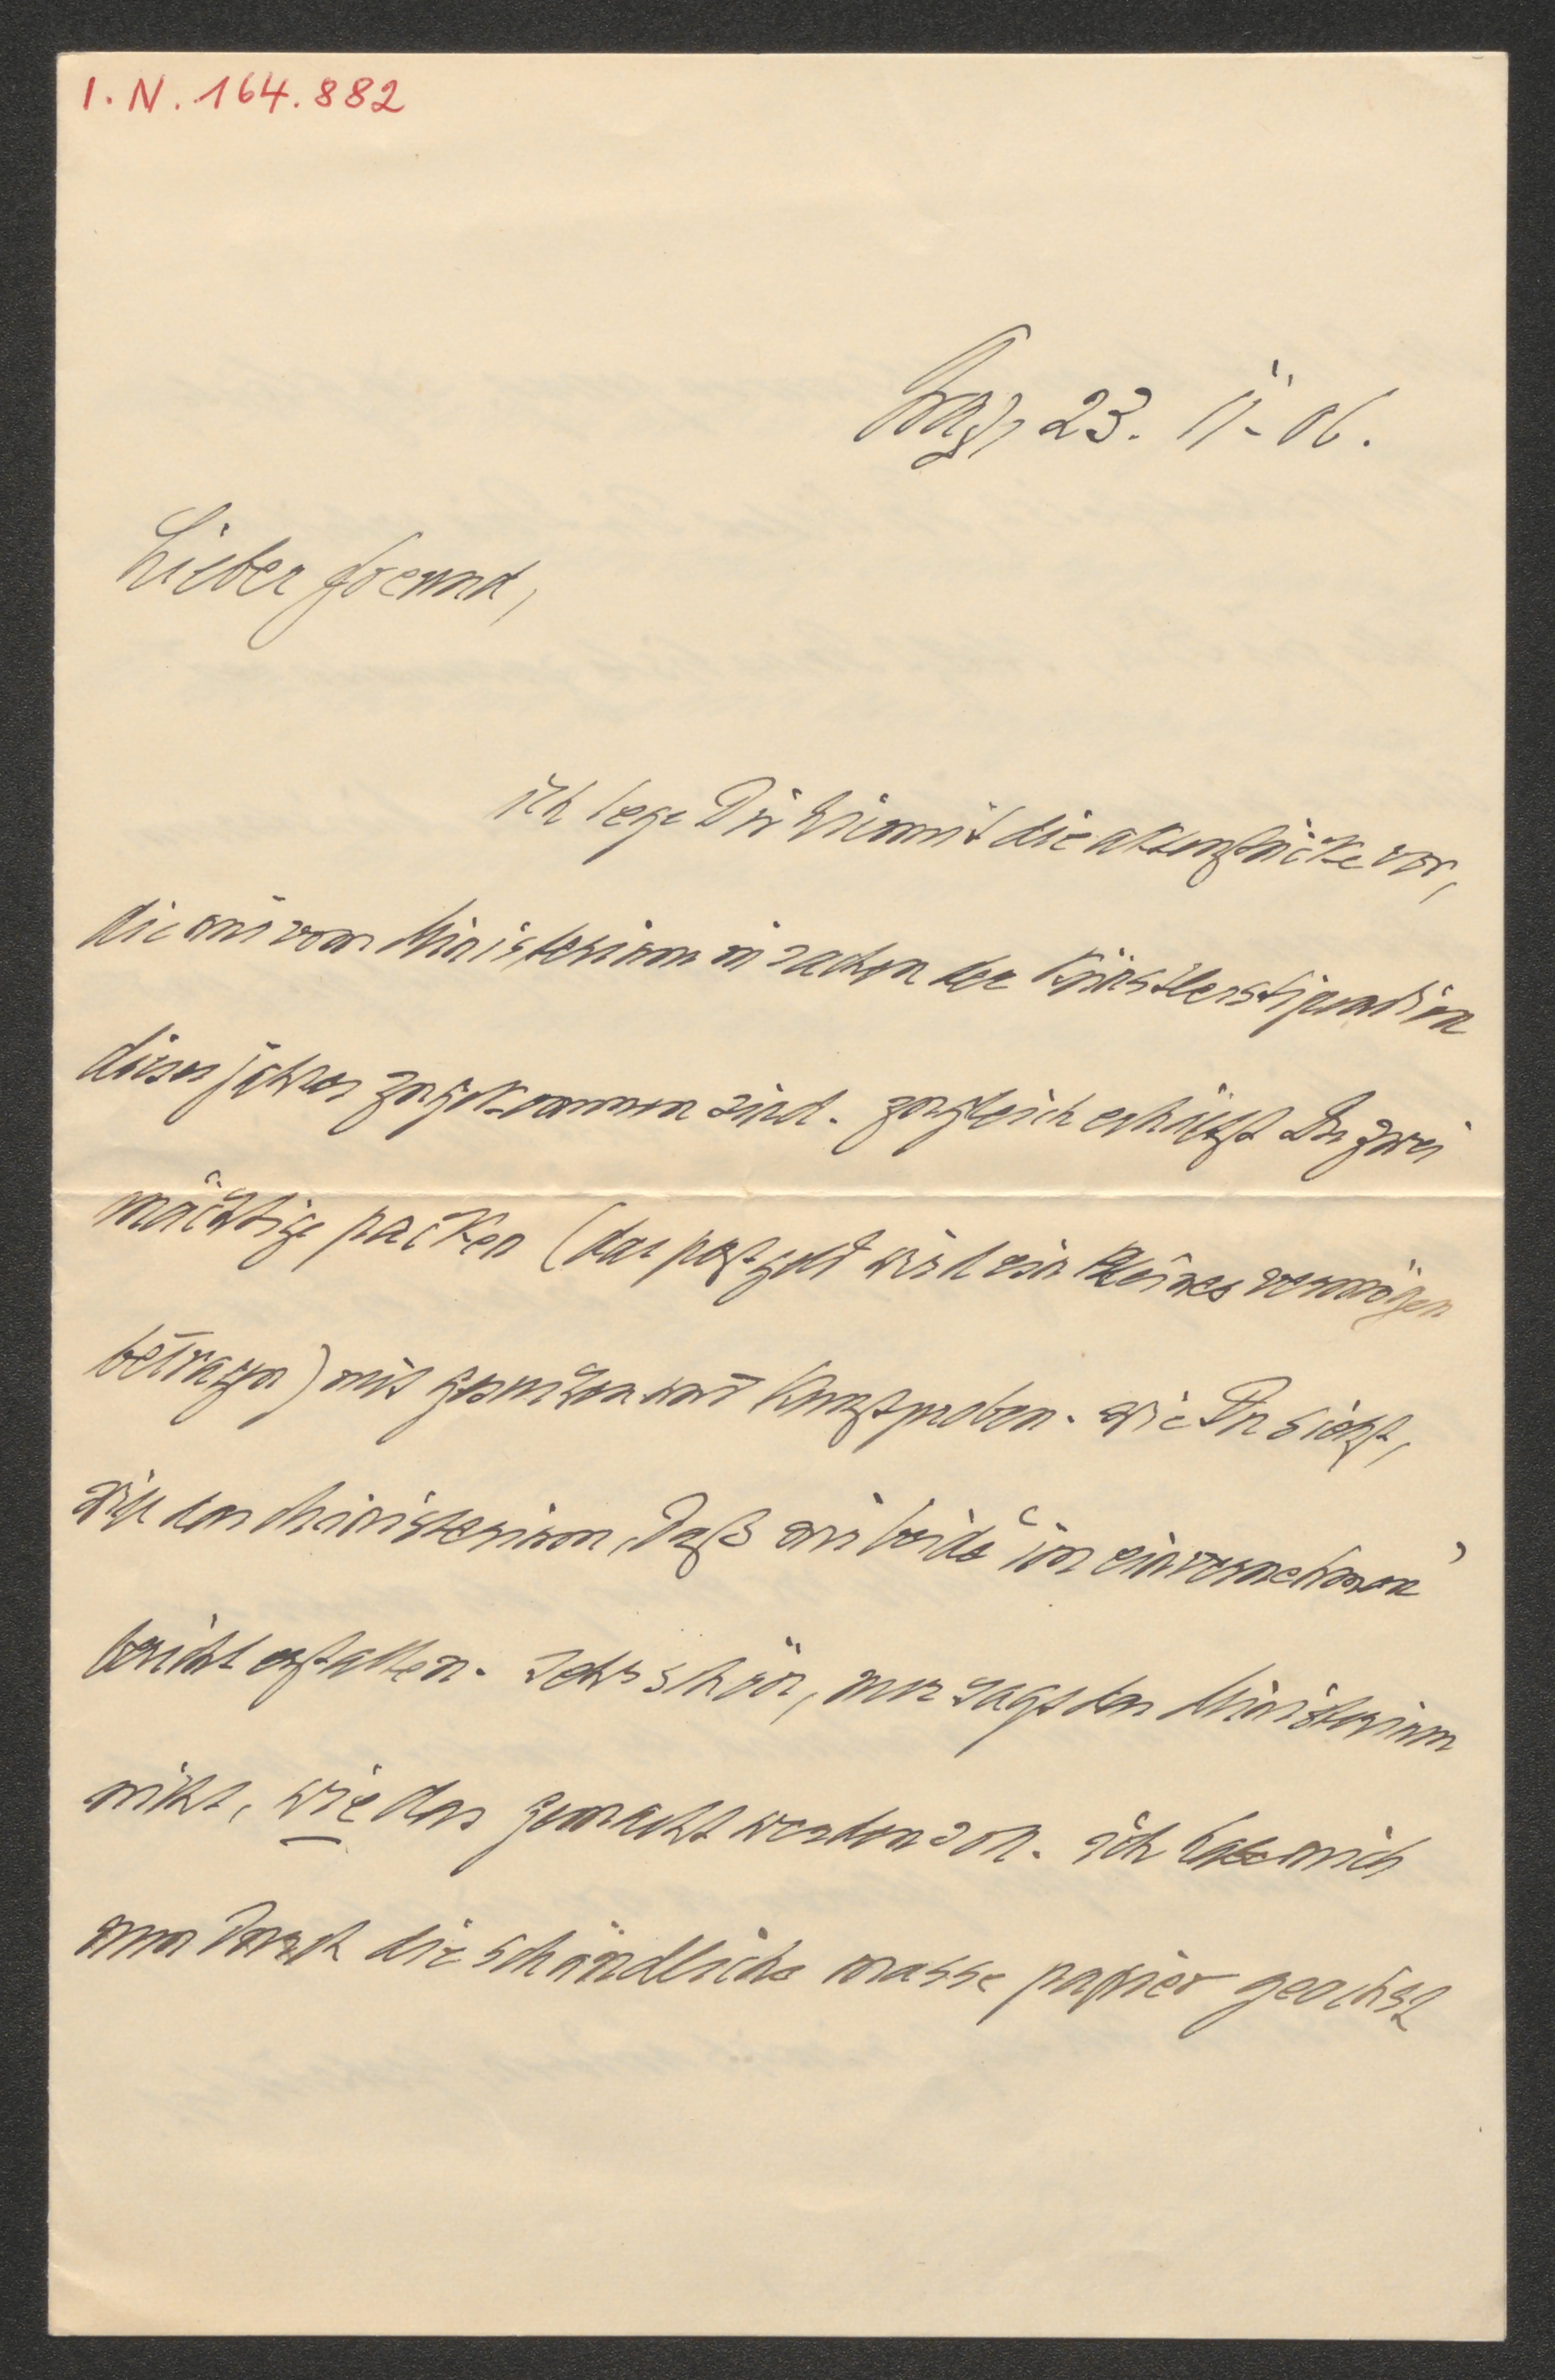 I. N. 164.882
Graz, 23. II. 06.
Lieber freund,
ich lege Dir hiemit die aktenstücke vor,
die mir vom Ministerium in sachen der Künstlerstipendien
dieses jahres zugekommen sind. zugleich erhältst Du zwei
mächtige packen (das postgeld wird ein kleines vermögen
betragen) mit gesuchen und Kunstproben. wie Du siehst,
will das Ministerium, daß wir beide „im einvernehmen“
bericht erstatten. sehr schön, nur sagt das Ministerium
nicht, wie das gemacht werden soll. ich habe mich
nun durch die schändliche masse papier geochst